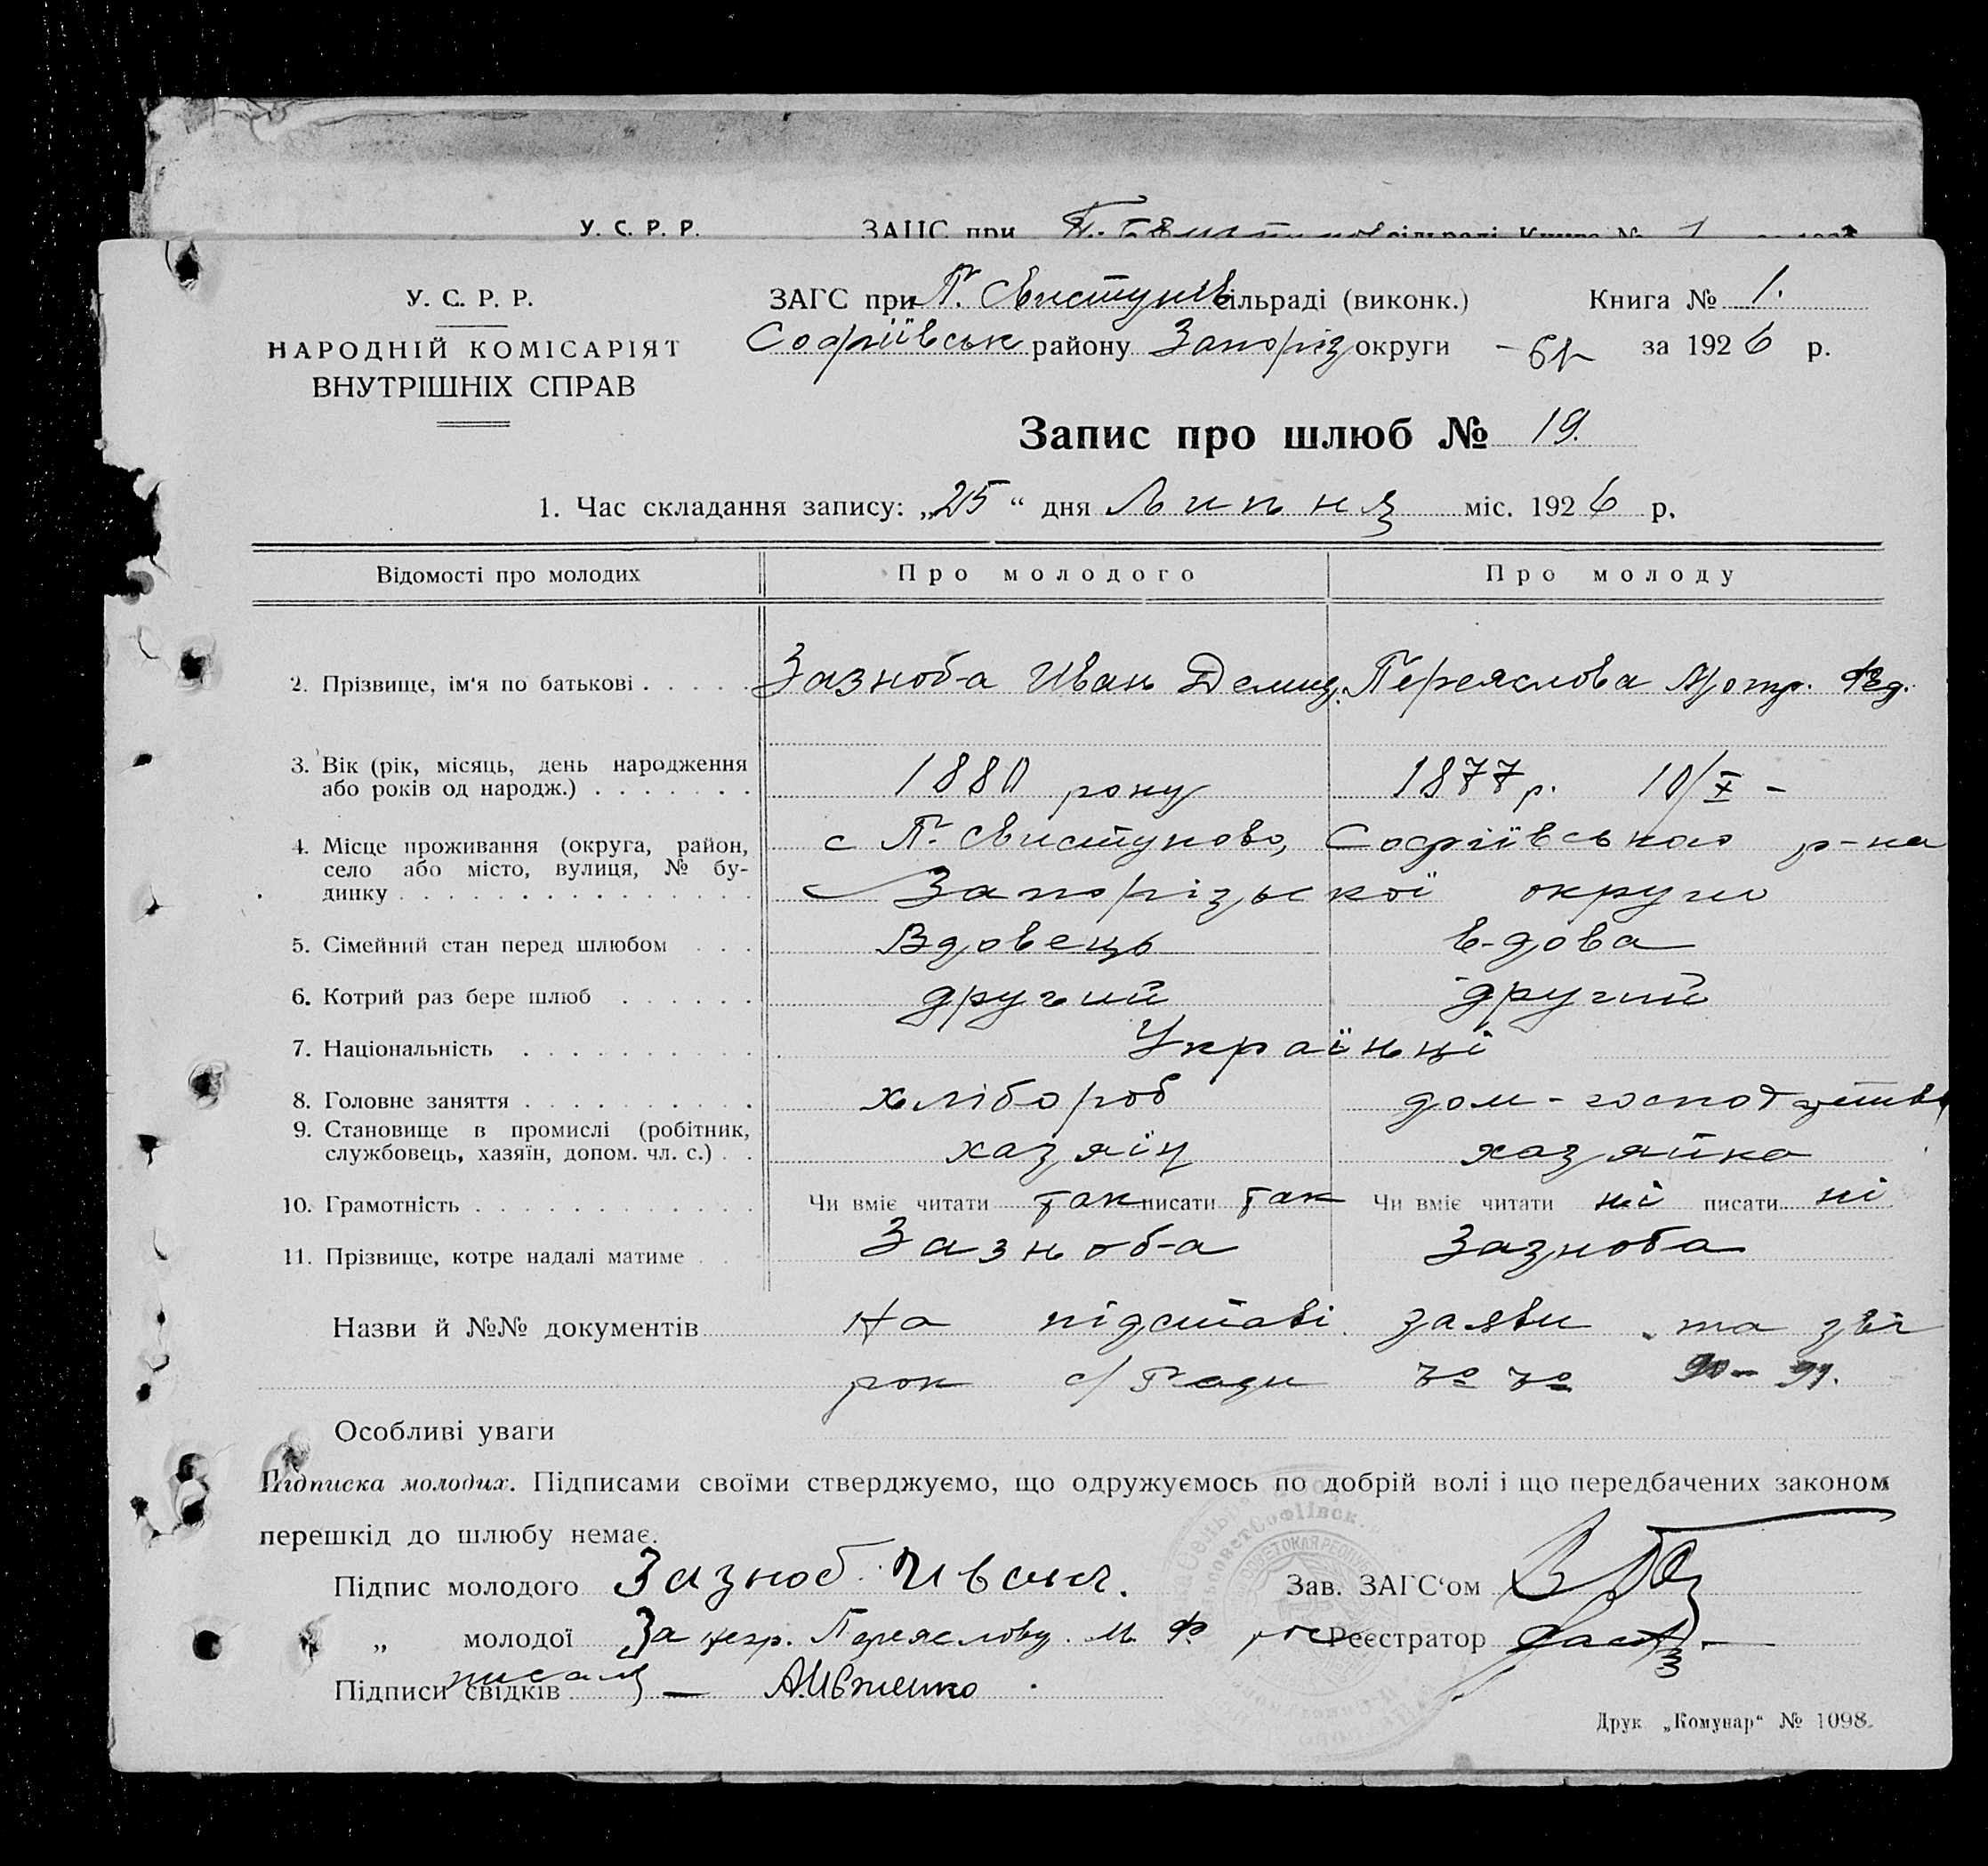 У. С. Р. Р. ЗАГС при сільраді Книга № 1
У. С. Р. Р.
НАРОДНІЙ КОМІСАРІЯТ
ВНУТРІШНІХ СПРАВ
ЗАГС при П. Свистунів сільраді (виконк.) Книга № 1.
Софіївськ району Запоріз округи за 1926 р.
Запис про шлюб № 19.
1. Час складання запису: „25“ дня Липня міс. 1926 р.
Відомості про молодих Про молодого Про молоду
2. Прізвище, ім'я по батькові Зазноба Иван Демид. Переяслова Мотр. Фед.
3. Вік (рік, місяць, день народження
або років од народж.) 1880 року 1877 р. 10/X -
4. Місце проживання (округа, район, с П. Свистуново, Софіївського р-на
село або місто, вулиця, № бу-
динку Запорізької округи
5. Сімейний стан перед шлюбом Вдовець в-дова
6. Котрий раз бере шлюб другий другий
7. Національність Українці
8. Головне заняття хлібороб дом-господ
9. Становище в промислі (робітник,
службовець, хазяїн, допом. чл. с.) хазяїн хазяйка
10. Грамотність Чи вміє читати так писати так Чи вміє читати ні писати ні
11. Прізвище, котре надалі матиме Зазноба Зазноба
Назви й №№ документів На підставі заяви та
с/Ради №№ 90-91.
Особливі уваги
Підписка молодих. Підписами своїми стверджуємо, що одружуємось по добрій волі і що передбачених законом
перешкід до шлюбу немає.
Підпис молодого Зазноб Иван. Зав. ЗАГС'ом
„ молодої За негр. Переяслову М. Ф. рос Реєстратор
писалз
Підписи свідків —
Друк „Комунар“ № 1098.